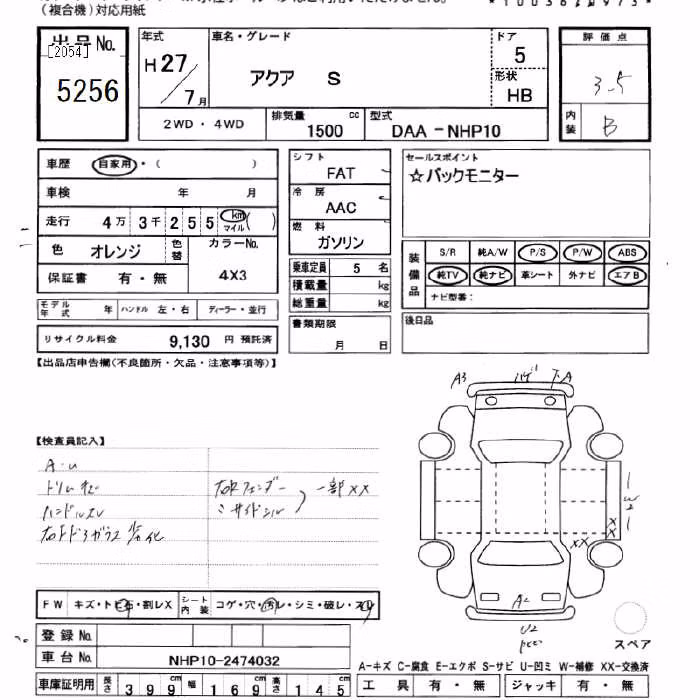 (複合機)対応用紙
出品No.
[2054]
5256
年式
H27/7月
車名・グレード
アクア S
ドア
5
形状
HB
評価点
3.5
内装
B
2WD・4WD
排気量
1500 cc
型式
DAA-NHP10
車歴 自家用・( )
車検 年 月
走行 4万3千255 km マイル ( )
色 オレンジ 色替
カラーNo.
4X3
保証書 有・無
モデル年式 年 ハンドル 左・右 ディーラー・並行
リサイクル料金 9,130 円 預託済
シフト
FAT
冷房
AAC
燃料
ガソリン
乗車定員 5 名
積載量 kg
総重量 kg
書類期限
月 日
セールスポイント
☆バックモニター
装備品
S/R 純A/W P/S P/W ABS
純TV 純ナビ 革シート 外ナビ エアB
ナビ型番:
後日品
【出品店申告欄(不良箇所・欠品・注意事項等)】
【検査員記入】
A・U
ハンドルスレ
一部XX
A3
A
W2
XX
A2
U2
スペア
FW キズ・トビ石・割レX
シート内装 コゲ・穴・汚レ・シミ・破レ・スリ
登録No.
車台No. NHP10-2474032
車庫証明用 長さ 399cm 幅 169cm 高さ 145
A-キズ C-腐食 E-エクボ S-サビ U-凹ミ W-補修 XX-交換済
工具 有・無 ジャッキ 有・無